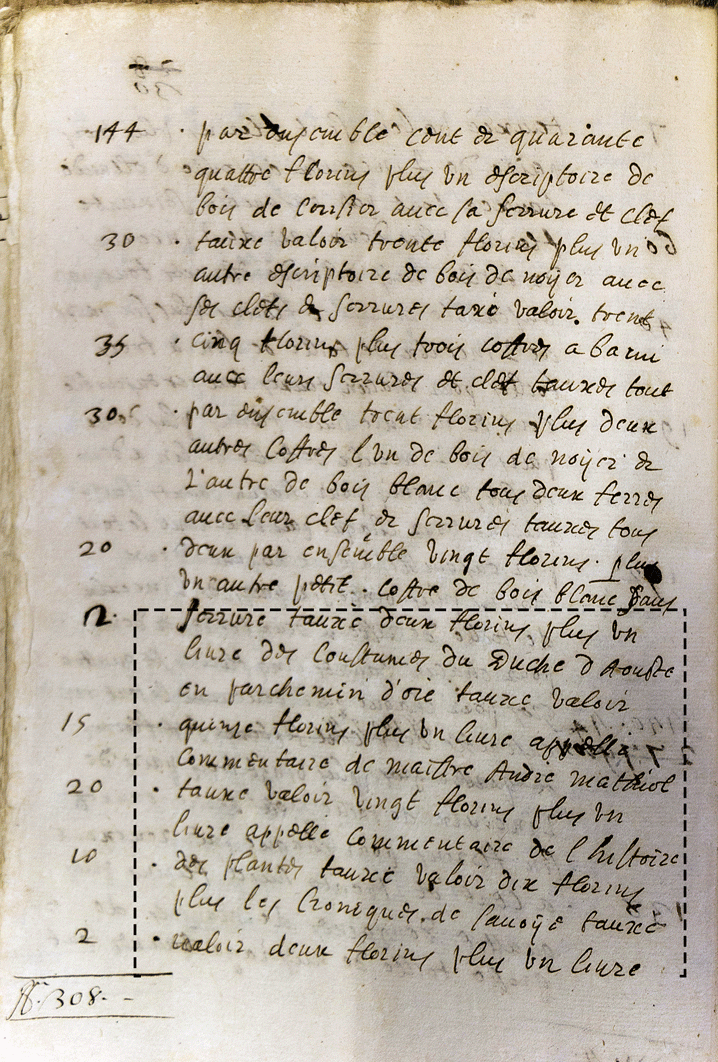 144 . par ensemble cent et quarante
quattre florins plus un escriptoire de
bois de cerisier avec sa serrure et clef
30 . tauxe valoir trente florins plus un
autre escriptoire de bois de noyer avec
ses clefs et serrures taxé valoir trent
35 . cinq florins plus trois coffres a bami
avec leurs serrures et clef tauxes tout
30 . par ensemble trent florins plus deux
autres coffres l'un de bois de noyer et
L'autre de bois blanc tous deux ferres
avec leur clef et serrures tauxes tous
20 . deux par ensemble vingt florins . plus
un autre petit . coffre de bois blanc sans
2 . serrure tauxé deux florins plus un
livre des Coustumes du Duche d Aouste
en parchemin d'oie tauxe valoir
15 . quinze florins plus un livre appelle
Commentaire de maistre Andre mathiol
20 . tauxe valoir vingt florins plus un
livre appellé Commentaire de l'histoire
10 . des plantes tauxé valoir dix florins
plus les Croniques de Savoye tauxé
2 . valoir deux florins plus un livre
ff. 308. -